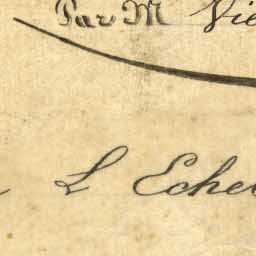 Par M Vie
L Eche